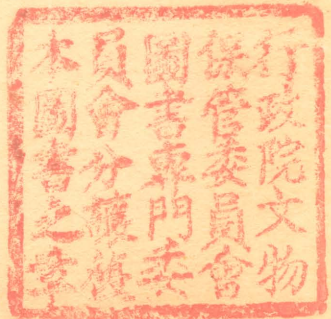 行政院文物
保管委員會
圖書專門委
員會分
本圖書之章